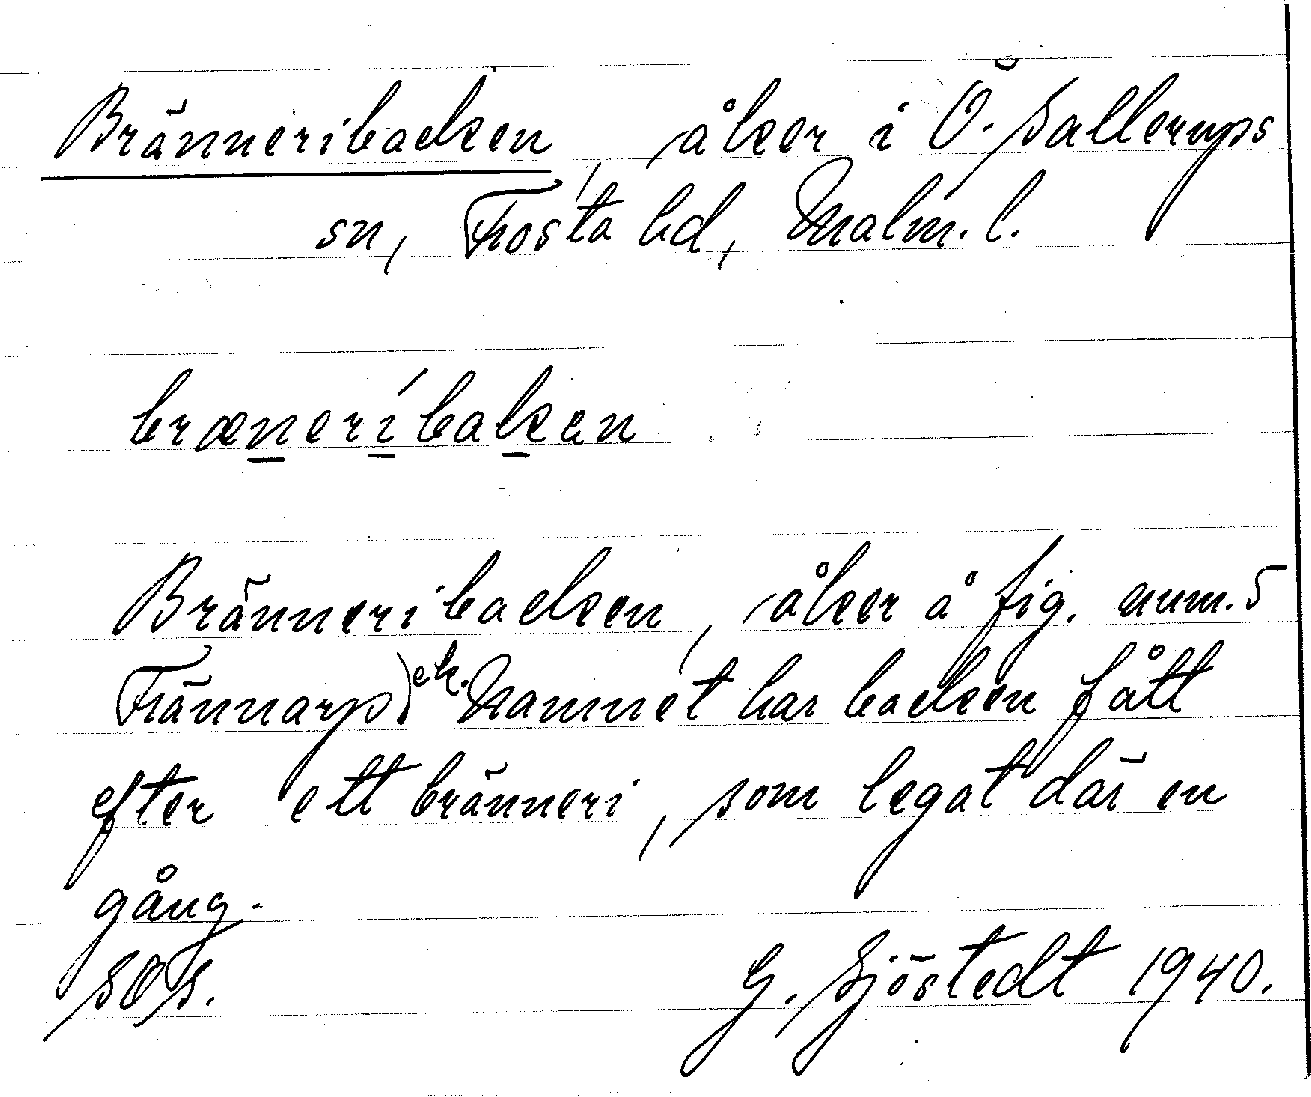 Brännеribacken, åker i Ö. Sallerups
sn, Frosta hd, Malm. l.
bræneríbakен
Bränneribacken, åker å fig. num. 5
Trännarp) ek. Namnet har backen fått
efter ett bränneri, som legat där en
gång.
SOS. G. Sjöstedt 1940.